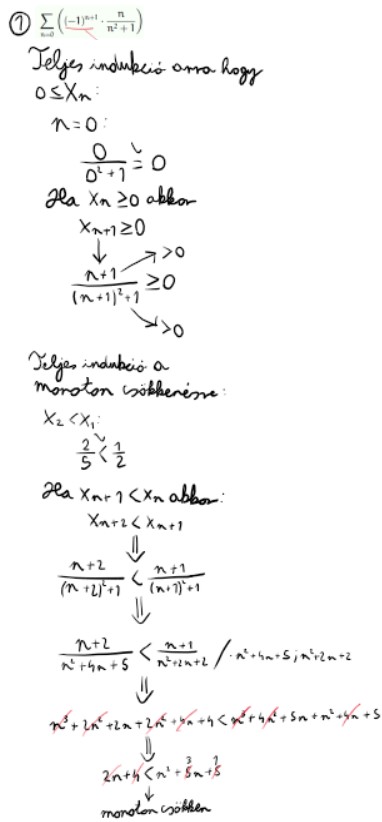 ① ∑ n=0 ((-1)^(n+1) · n/(n²+1))
Teljes indukció arra hogy
0≤Xn:
n=0:
0/(0²+1) = 0
Ha Xn ≥0 akkor
Xn+1≥0
↓ → >0
(n+1)/((n+1)²+1) ≥0
↘ >0
Teljes indukció a
monoton csökkenésre:
X₂ < X₁:
2/5 < 1/2
Ha Xn+1 < Xn akkor:
Xn+2 < Xn+1
⇓
(n+2)/((n+2)²+1) < (n+1)/((n+1)²+1)
⇓
(n+2)/(n²+4n+5) < (n+1)/(n²+2n+2) / ·n²+4n+5; n²+2n+2
⇓
n³+2n²+2n+2n²+4n+4 < n³+4n²+5n+n²+4n+5
⇓
3 1
2n+4 < n²+5n+5
↓
monoton csökken